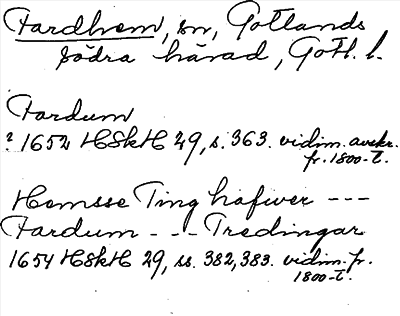 Fardhem, sn, Gotlands
södra härad, Gotl. l.
Fardum
? 1652 HSkH 29, s. 363. vidim. avskr.
fr. 1800-t.
Hemsse Ting hafwer ---
Fardum - - - Tredingar
1654 HSkH 29, ss. 382, 383. vidim. fr.
1800-t.